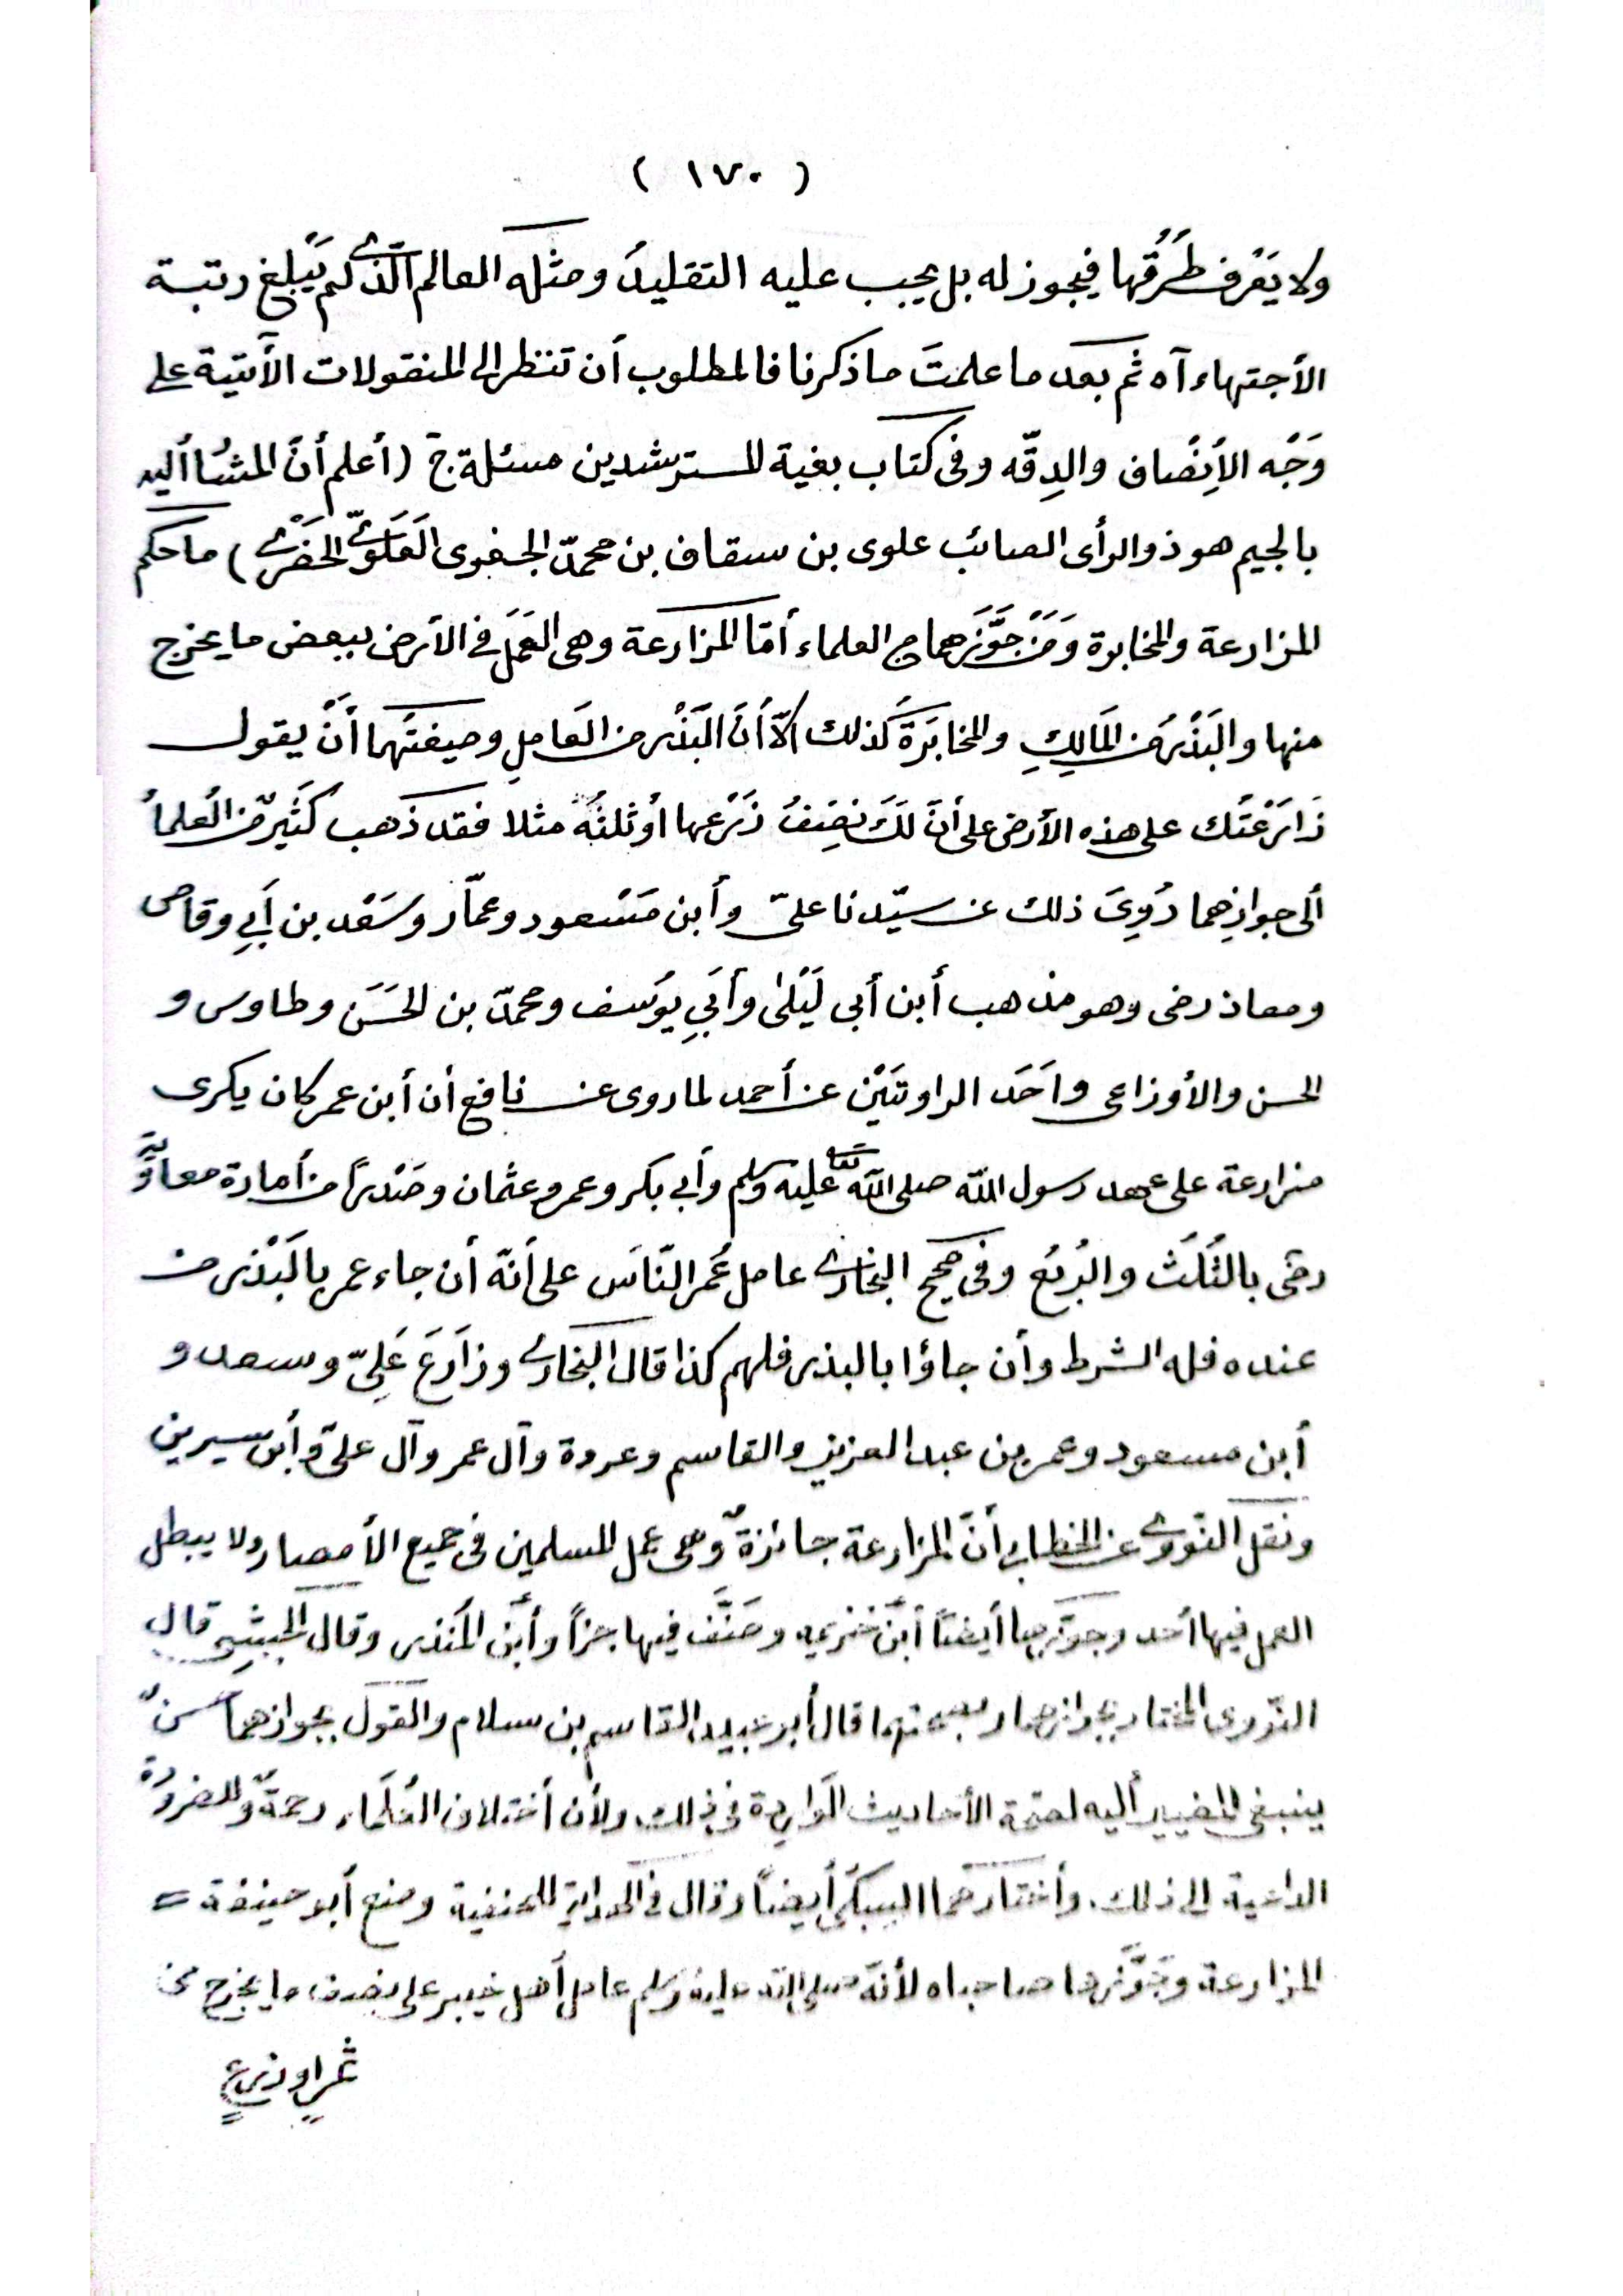 ( ١٧٠ )
ولا يَعْرف طُرُقُها فيجوز له بل يجب عليه التقليدُ ومثله العالم الّذى لم يَبلغ رتبة
الأجتهاد آه ثم بعد ما علمتَ ما ذكرنا فالمطلوب أن تنظر الى المنقولات الأتية على
وَجْه الأِنْصاف والدِقّه وفى كتاب بغية المسترشدين مسئلة ج (أعلم أنّ المشُا أليه
بالجيم هو ذو الرأى الصائب علوى بن سقاف بن محمدّ الجفرى العَلَوىّ الحَضْرمى) ما حكم
المزارعة والمخابرة وَمَنْ جَوَّزَهما من العلماء أمّا المزارعة وهى العَمَل فى الأرض ببعض ما يخرج
منها والبَذْرُ من المَالِكِ والمخابَرَة كذلك الاّ أنَّ البَذْر من العَامِلِ وصيغتَهما أنْ يقول
زَارَعْتُك على هذه الأرض على أنّ لَكَ نِصْفُ زَرْعها أوْ ثلثُهُ مثلا فقد ذهب كَثيرٌ من العُلمأ
ألى جوازِهما رُوِىَ ذلك عن سيّدنا علىّ وأبن مَسْعود وعمّار وسَعْد بن أَبِى وقاص
ومعاذ رضى وهو مذهب أبن أبى لَيْلىٰ وأَبِى يوُسف ومحمدّ بن الحَسَن وطاوس و
الحسن والأوزاعى وأحَد الراوتَيْن عن أحمد لما روى عن نافع أن أبن عمر كان يكرى
مزارعة على عهد رسول اللّه صلى اللّه عليه وسلم وأبى بكر وعمر وعثمان وصَدْراً من أمارة معاويّة
رضى بالثُلُث والرُبُع وفى صحيح البخارى عامل عُمر النّاسَ على أنّه أن جاء عمر بالبَذْر من
عنده فله الشرط وأن جاؤا بالبذر فلهم كذا قال البخارى وزَارَعَ عَلِىّ وسعد و
أبن مسعود وعمر بن عبد العزيز والقاسم وعروة وآل عمر وآل علىّ وأبن سيرين
ونقل النّووى عن الخطابى أنّ المزارعة جائزةٌ وهى عمل المسلمين فى جميع الأمصار ولا يبطل
العمل فيها أحد وجوّزها أيضاً أبنُ خزيمه وصَنَّف فيها جزأً وأبن المُنذر وقال الحبيشى قال
النّووى المختار جوازهما وصحتهما قال أبو عبيد القاسم بن سلام والقول بجوازهما حسنٌ
ينبغى المصير أليه لصحّة الأحاديث الوَارِدة فى ذلك ولأن أختلاف العُلَماء رحمةٌ وللضرورة
الداعية الى ذلك. وأختارهما السبكى أيضاً وقال فى الهداية للحنفية ومنع أبو حنيفة =
المزارعة وجَوَّزها صاحباه لأنّه صلى اللّه عليه وسلم عامل أهل خيبر على نصف ما يخرج من
ثمرٍ او زرعٍ